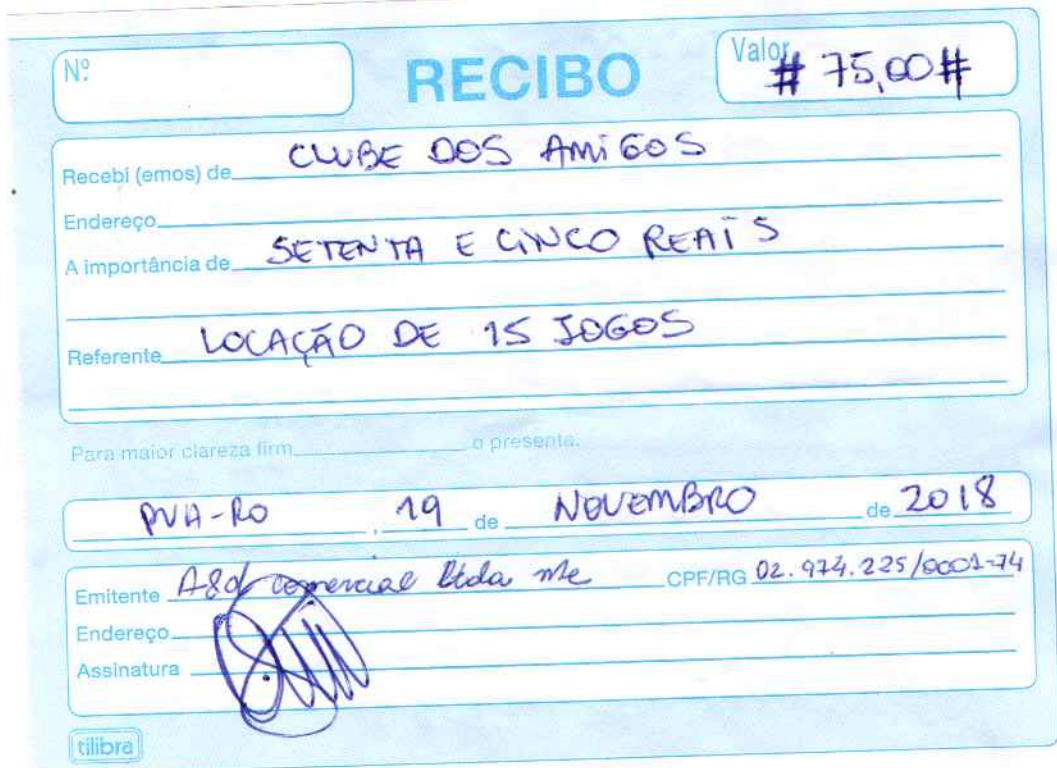 Nº RECIBO Valor # 75,00 #
Recebi (emos) de CLUBE DOS AMIGOS
Endereço
A importância de SETENTA E CINCO REAIS
Referente LOCAÇÃO DE 15 JOGOS
Para maior clareza firm o presente.
PVH-RO, 19 de NOVEMBRO de 2018
Emitente comercial ltda me CPF/RG 02.974.225/0001-74
Endereço
Assinatura
tilibra